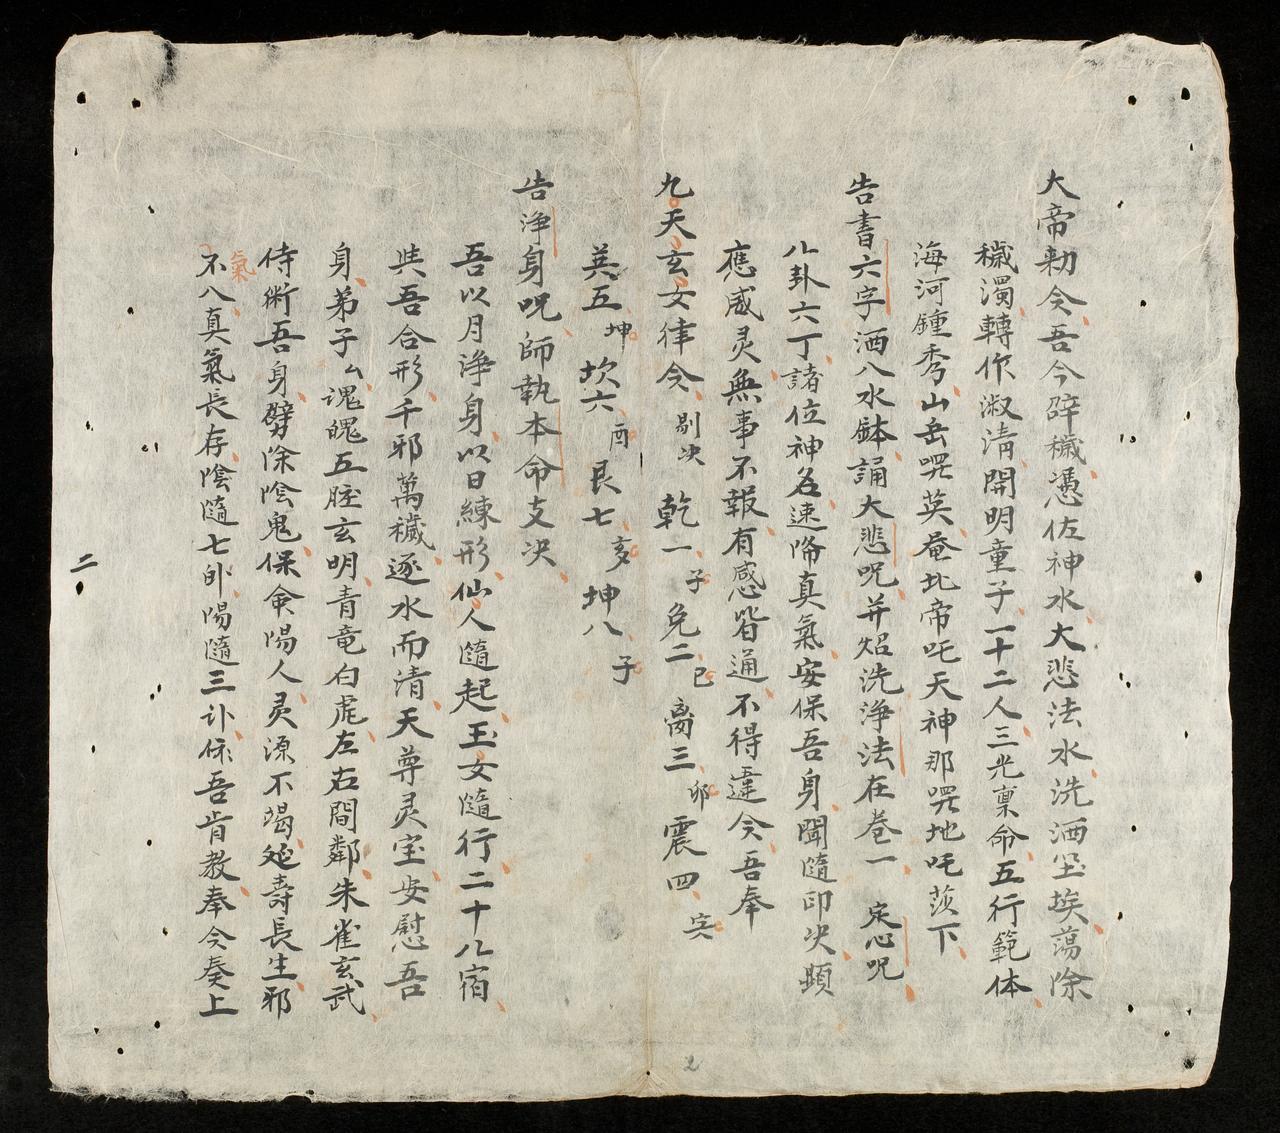 大帝勅令吾今辟穢憑佐神水大悲法水洗洒尘埃蕩除
穢濁轉作淑清開明童子一十二人三光稟命五行範体
海河鍾秀山岳哭英奄北帝吒天神那哭地吒莎下
告書六字洒八水鉢誦大悲呪并炤洗浄法在卷一 定心呪
八卦六丁諸位神名速降真氣安保吾身聞隨印決顕
應威灵無事不報有感皆通不得違今吾奉
九天玄女律令 剔决 乾一 子 兔二 巳 离三 卯 震四 寅
英五 坤 坎六 酉 艮七 亥 坤八 子
告浄身呪師執本命支决
吾以月浄身以日練形仙人隨起玉女隨行二十八宿
與吾合形千邪萬穢逐水而清天尊灵宝安慰吾
身弟子厶魂魄五脏玄明青竜白虎左右間鄰朱雀玄武
侍衛吾身劈除陰鬼保命陽人灵源不竭延壽長生邪
氣
不八真氣長存陰隨七卟陽隨三卟依吾肯教奉令奏上
二
2